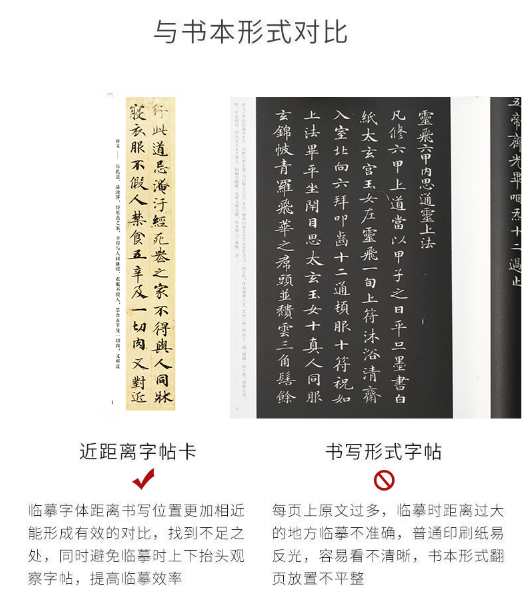 与书本形式对比
行此道忌淹汙經死喪之家不得與人同牀
寢衣服不假人禁食五辛及一切肉又對近
靈飛六甲內思通靈上法
凡修六甲上道當以甲子之日平旦墨書白
紙太玄宮玉女左靈飛一旬上符沐浴清齋
入室北向六拜叩齒十二通頓服十符祝如
上法畢平坐閉目思太玄玉女十真人同服
玄錦帔青羅飛華之帬頭並頹雲三角髻餘
近距离字帖卡
临摹字体距离书写位置更加相近
能形成有效的对比，找到不足之
处，同时避免临摹时上下抬头观
察字帖，提高临摹效率
书写形式字帖
每页上原文过多，临摹时距离过大
的地方临摹不准确，普通印刷纸易
反光，容易看不清晰，书本形式翻
页放置不平整